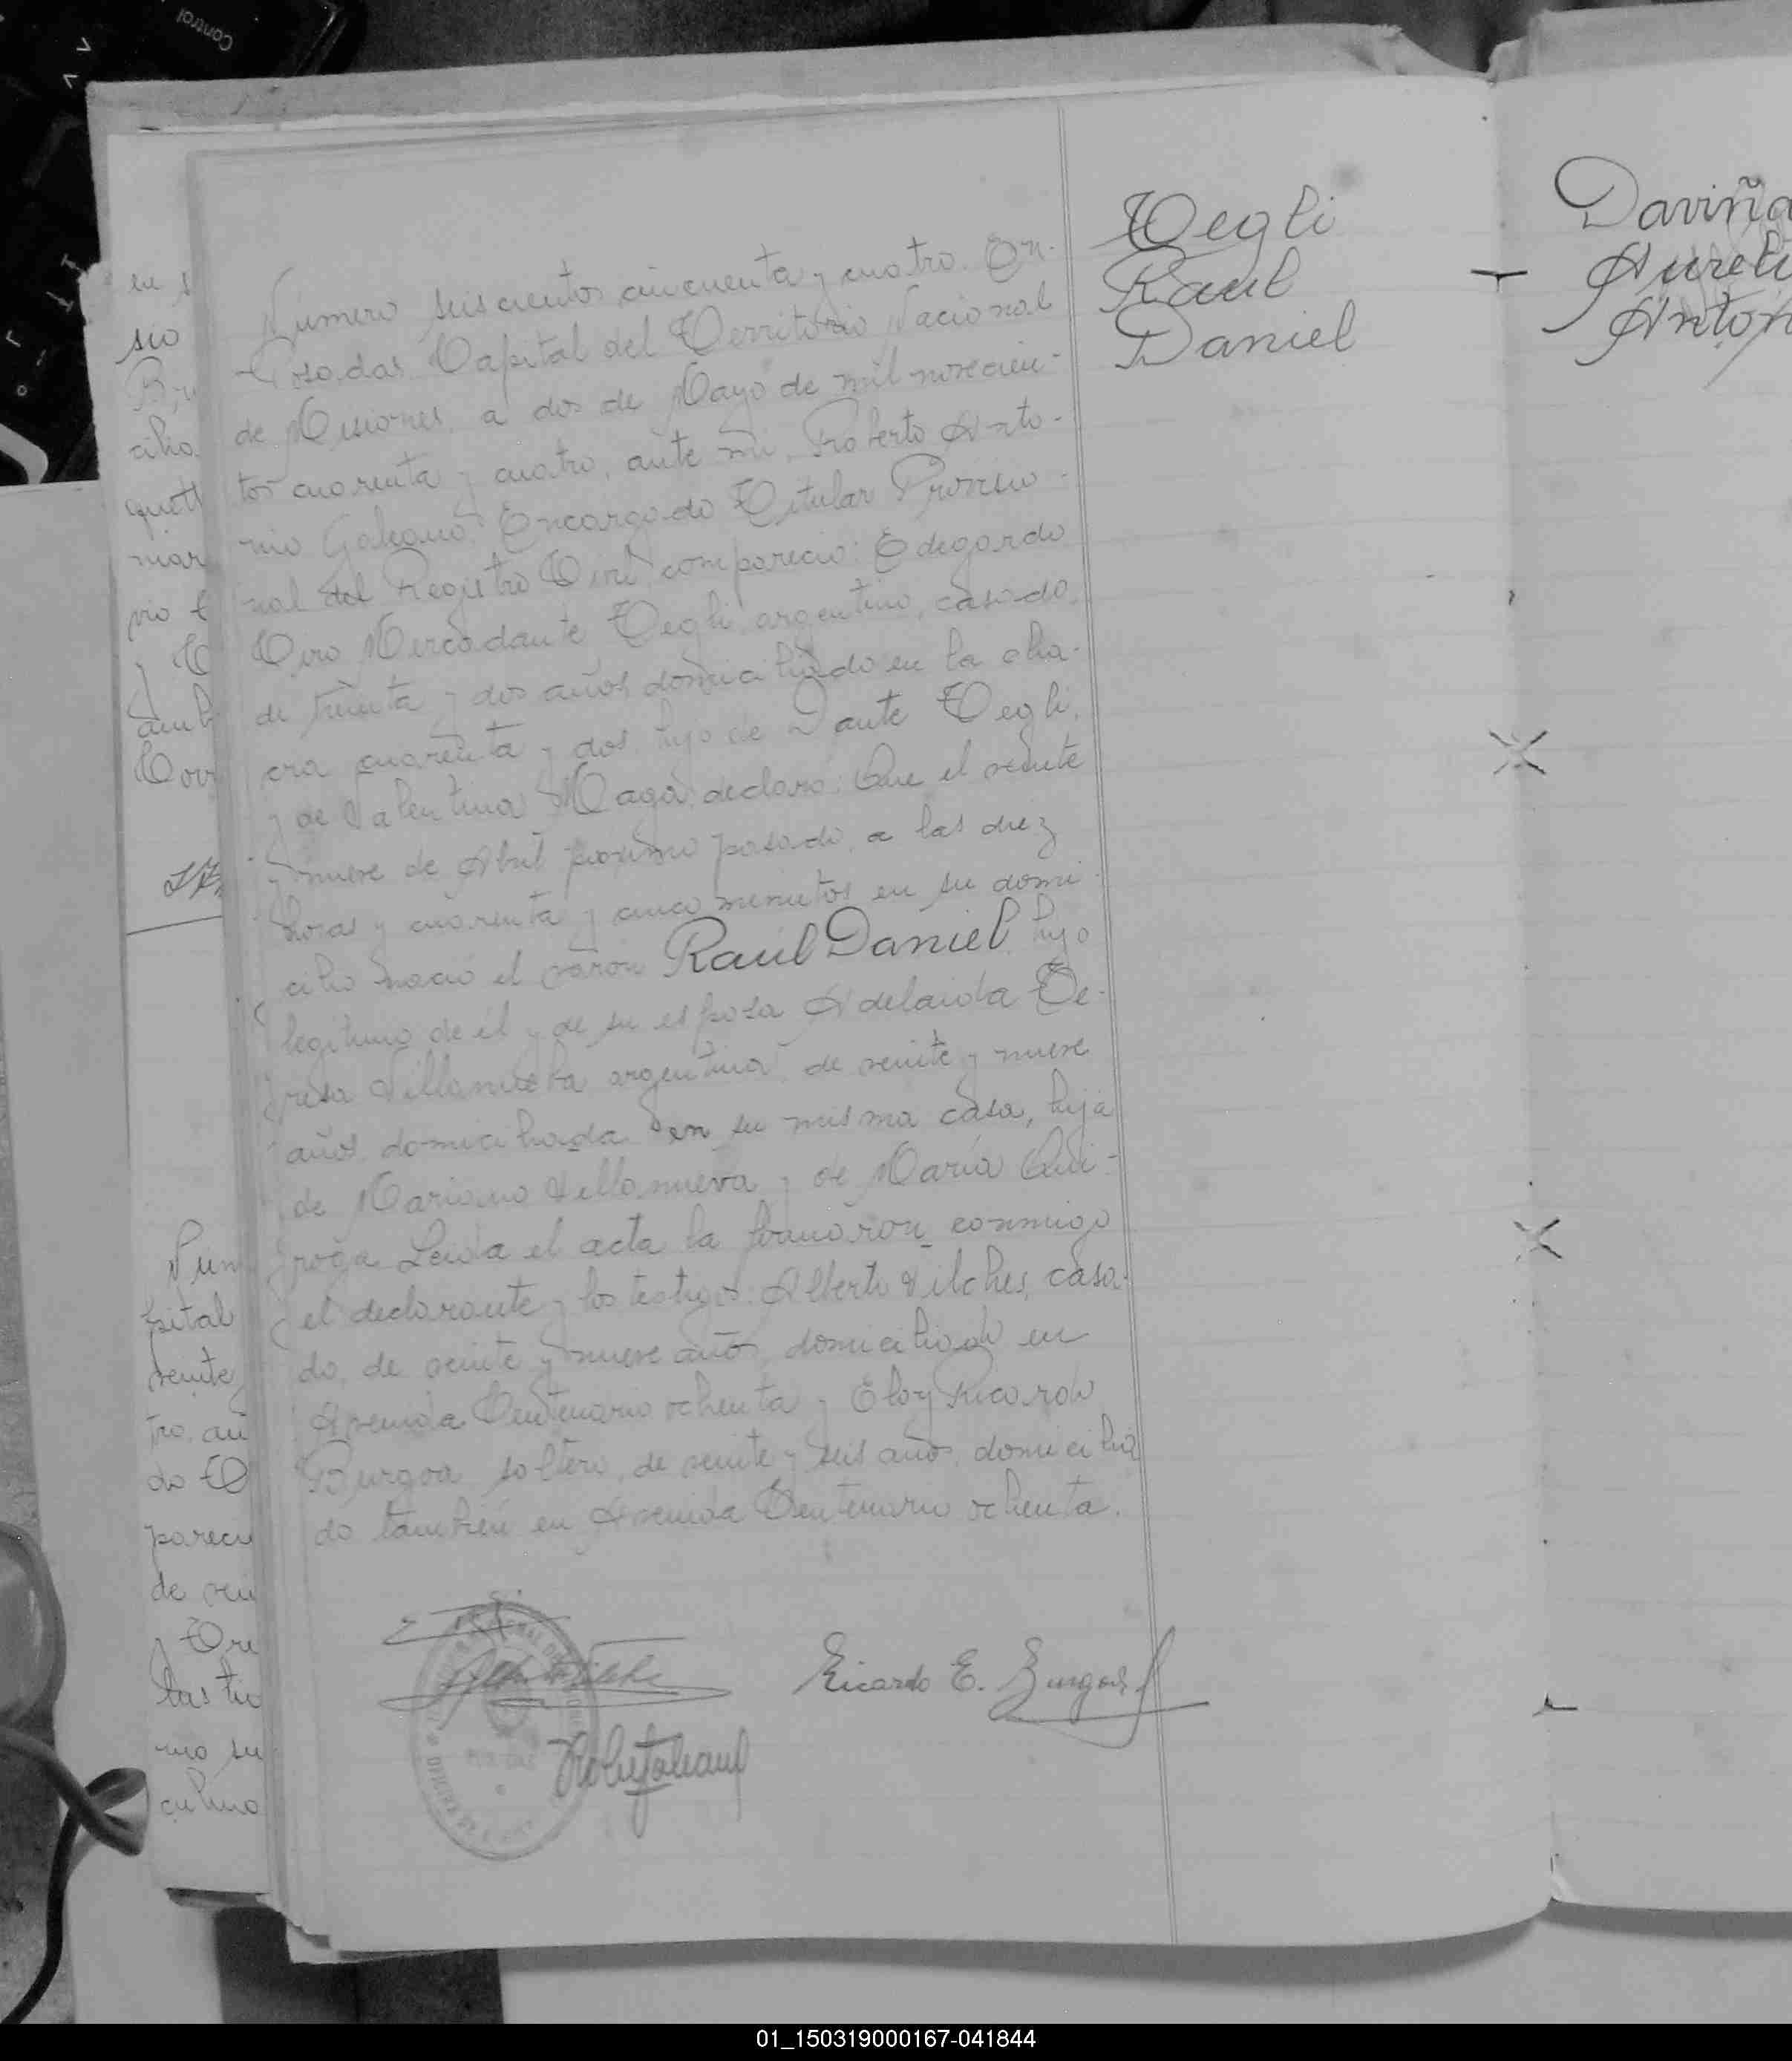 Control
Número seiscientos cincuenta y cuatro. En
Posadas Capital del Territorio Nacional
de Misiones, a dos de Mayo de mil novecien-
tos cuarenta y cuatro, ante mí, Roberto Anto-
nio Galeano, Encargado Titular Provisio-
nal del Registro Civil, compareció: Edegardo
Ciro Mercadante Tegli, argentino, casado,
de treinta y dos años, domiciliado en la cha-
cra cuarenta y dos, hijo de Dante Tegli,
y de Valentina Maga, declaró: Que el veinte
y nueve de Abril próximo pasado, a las diez
horas y cuarenta y cinco minutos en su domi-
cilio nació el varón Raúl Daniel, hijo
legitimo de él y de su esposa Adelaida Te-
resa Villanueva argentina, de veinte y nueve
años, domiciliada en su misma casa, hija
de Mariano Villanueva y de María Qui-
roga. Leida el acta la firmaron conmigo
el declarante y los testigos: Alberto Vilches, casa-
do, de veinte y nueve años, domiciliado en
Avenida Centenario ochenta y Eloy Ricardo
Burgoa soltero, de veinte y seis años, domicilia
do también en Avenida Centenario ochenta.
Ricardo E. Burgoa
Tegli
Raul
Daniel
Daviña
Aureli
Anton
en s
sio
cilio
quett
mar
vio
amb
Corr
Num
pital
veinte
tro, an
do
parecu
de vei
y Ore
las tre
mo su
culino
01_150319000167-041844